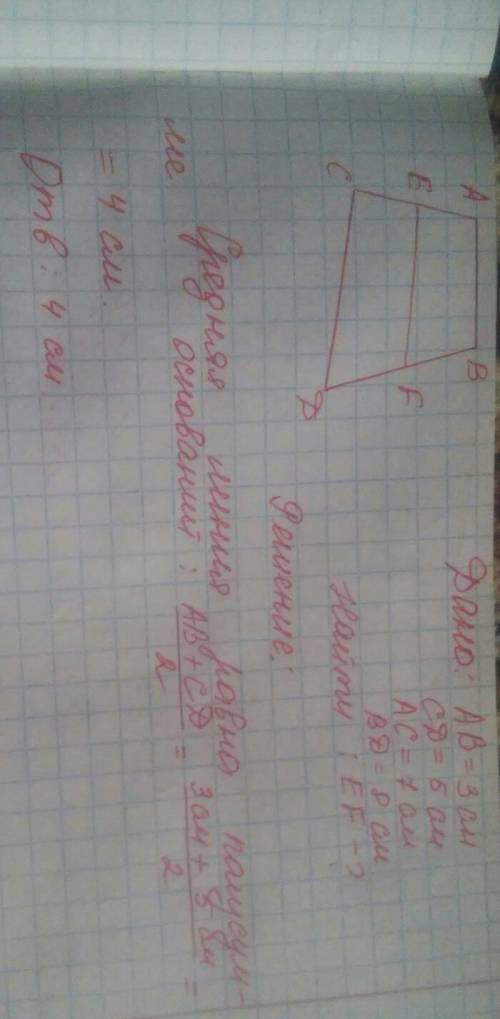 A B
E F
C D
Дано: AB = 3 см
CD = 5 см
AC = 7 см
BD = 8 см
Найти: EF - ?
Решение:
Средняя линия равна полусум-
ме оснований: AB + CD / 2 = 3 см + 5 см / 2 =
= 4 см.
Отв: 4 см